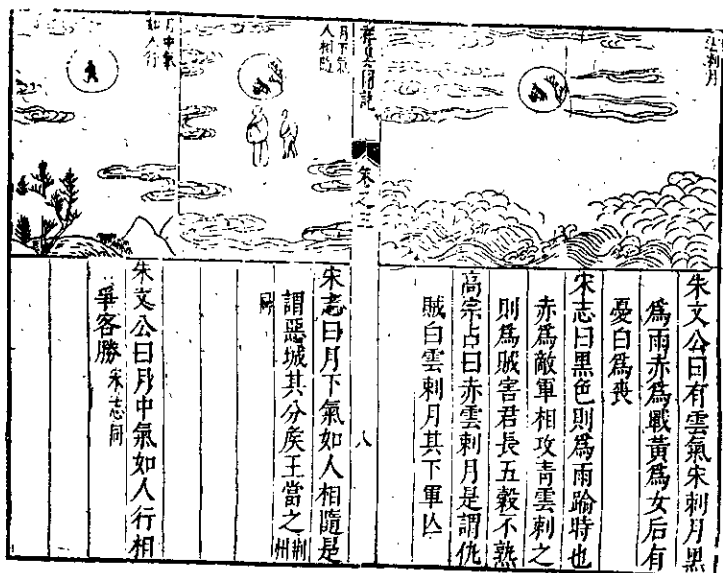 刺月
朱文公曰有雲氣宋刺月黑
爲雨赤爲戰黃爲女后有
憂白爲喪
宋志曰黑色則爲雨踰時也
赤爲敵軍相攻青雲刺之
則爲賊害君長五穀不熟
高宗占曰赤雲刺月是謂仇
賊白雲刺月其下軍亾
卷之三
八
月下氣
人相隨
宋志曰月下氣如人相隨是
謂惡城其分矦王當之荆州
同
月中氣
如人行
朱文公曰月中氣如人行相
爭客勝宋志同